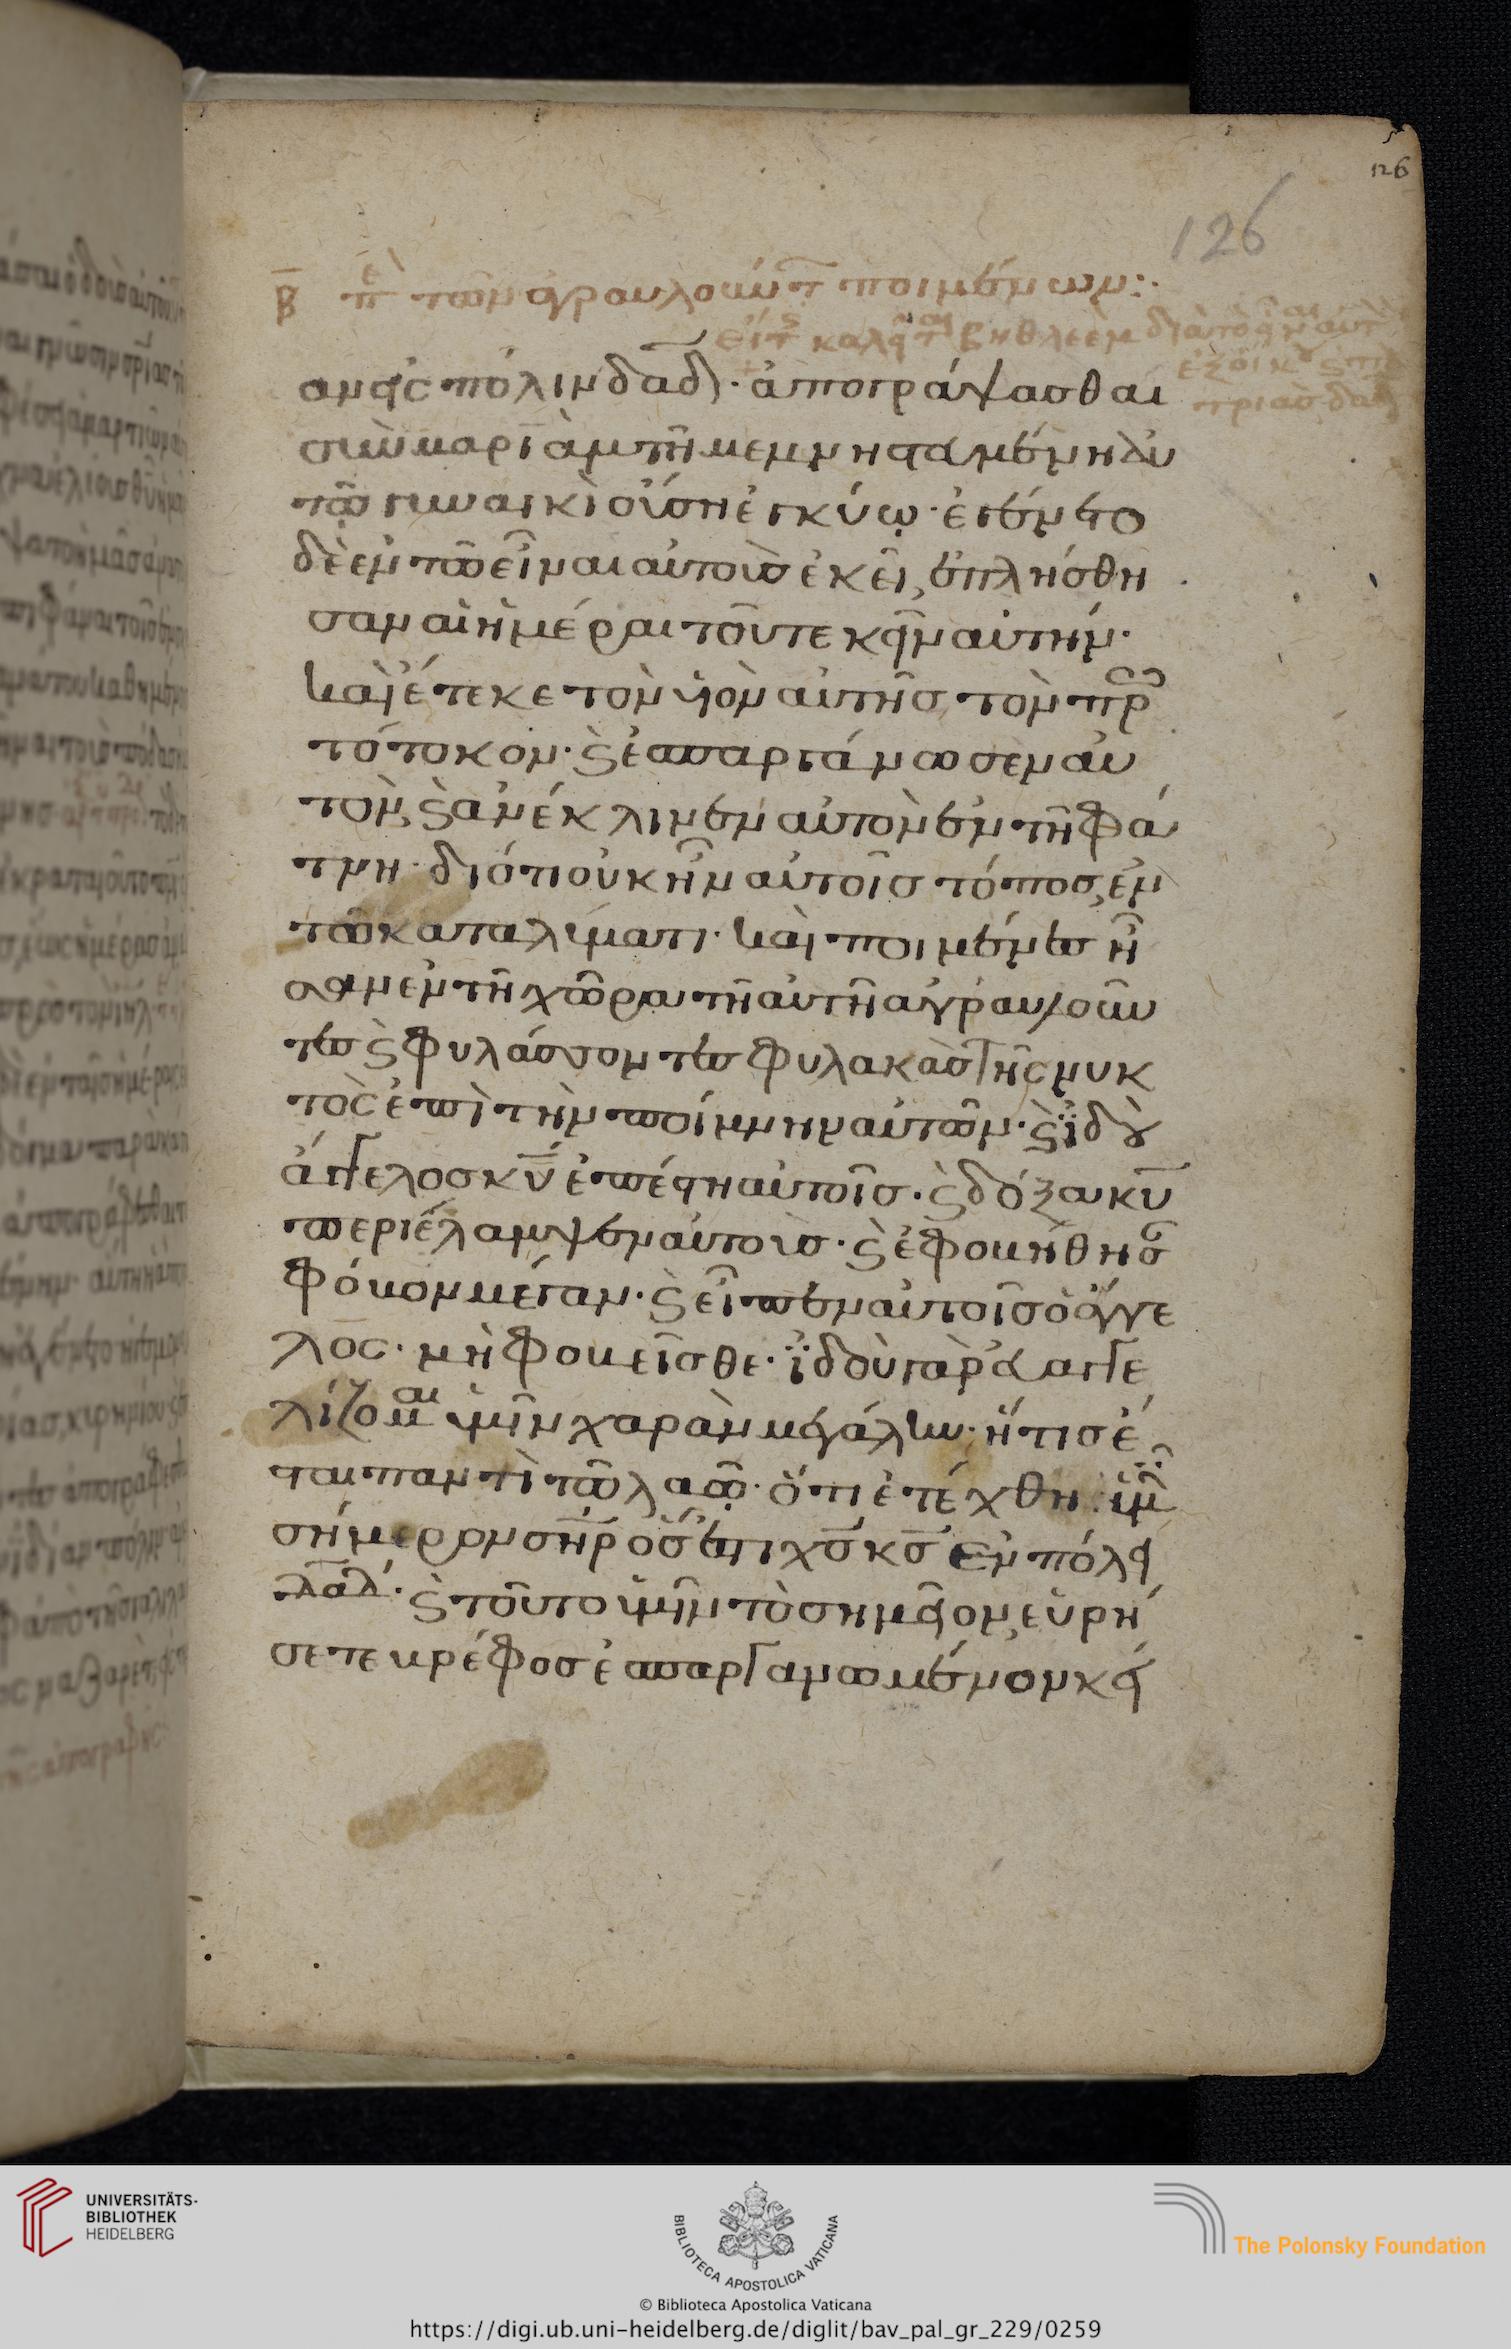 126
126
β̄ πε̅ τῶν ἀγραυλούντ ποιμένων:·
καλεῖται βηθλεὲμ διὰ τὸ εἶναι αὐτὸ
ἐξ οἴκου
πριᾶσ δαδ
αν εἰς πόλιν δᾱδ· ἀπογράψασθαι
σὺν μαριὰμ τῆ μεμνηστευμένη αὐ
τῶ γυναικὶ οὔση ἐγκύω· ἐγένετο
δὲ ἐν τῶ εἶναι αὐτοὺσ ἐκεῖ, ἐπλήσθη
σαν αἱ ἡμέραι τοῦ τεκεῖν αὐτήν·
καὶ ἔτεκε τὸν υἱὸν αὐτῆσ τὸν πρω
τότοκον· ϛ ἐσπαργάνωσεν αὐ
τὸν, ϛ ἀνέκλινεν αὐτὸν ἐν τῆ φά
τνη· διότι οὐκ ἦν αὐτοῖσ τόποσ, ἐν
τῶ καταλύματι· καὶ ποιμένεσ ἦ
σαν ἐν τῆ χώρα τῆ αὐτῆ ἀγραυλοῦν
τεσ ϛ φυλάσσοντεσ φυλακὰσ τῆς νυκ
τὸς ἐπὶ τὴν ποίμνην αὐτῶν· ϛ ϊδοὺ
ἄγγελοσ κ̅υ̅ ἐπέστη αὐτοῖσ· ϛ δόξα κ̅υ̅
περιέλαμψεν αὐτοὺσ· ϛ ἐφοβήθησ
φόβον μέγαν· ϛ εἶπεν αὐτοῖσ ὁ ἄγγε
λος· μὴ φοβεῖσθε· ϊδοὺ γὰρ εὐαγγε
λίζομαι ὑμῖν χαρὰν μεγάλην· ἥτισ ἔ
σται παντὶ τῶ λαῶ· ὅτι ἐτέχθη ὑμῖ
σήμερον σ̅η̅ρ ὅσ ἐστι χ̅σ̅ κ̅σ̅ ἐν πόλει
δᾱδ· ϛ τοῦτο ὑμῖν τὸ σημεῖον, εὑρή
σετε βρέφοσ ἐσπαργανωμένον κεί
UNIVERSITÄTS-
BIBLIOTHEK
HEIDELBERG
BIBLIOTECA APOSTOLICA VATICANA
The Polonsky Foundation
© Biblioteca Apostolica Vaticana
https://digi.ub.uni-heidelberg.de/diglit/bav_pal_gr_229/0259